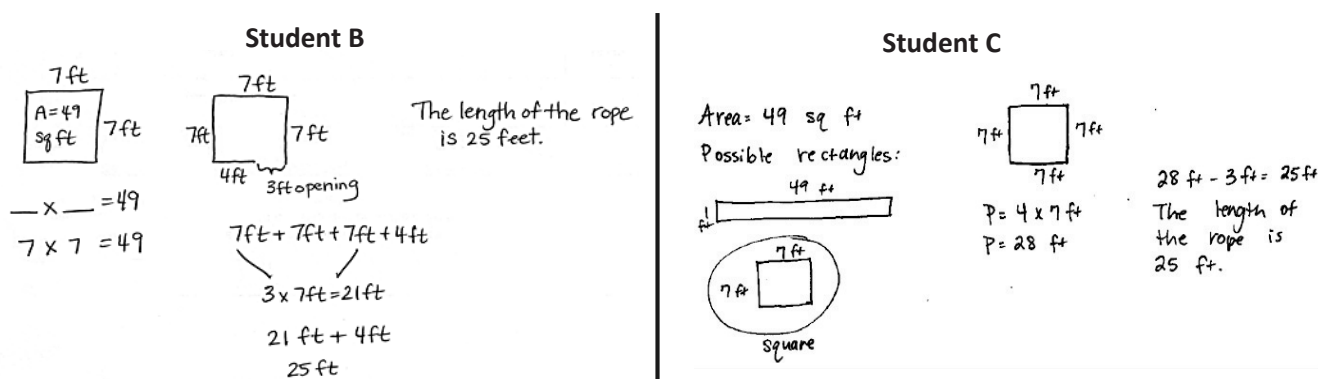 Student B
7ft
A=49
sq ft
7ft
__ x __ = 49
7 x 7 = 49
7ft
7ft
7ft
4ft
3ft opening
7ft + 7ft + 7ft + 4ft
3 x 7ft = 21ft
21 ft + 4ft
25 ft
The length of the rope
is 25 feet.
Student C
Area = 49 sq ft
Possible rectangles:
49 ft
1
ft
7 ft
7 ft
square
7 ft
7 ft
7 ft
7 ft
P = 4 x 7 ft
P = 28 ft
28 ft - 3 ft = 25 ft
The length of
the rope is
25 ft.